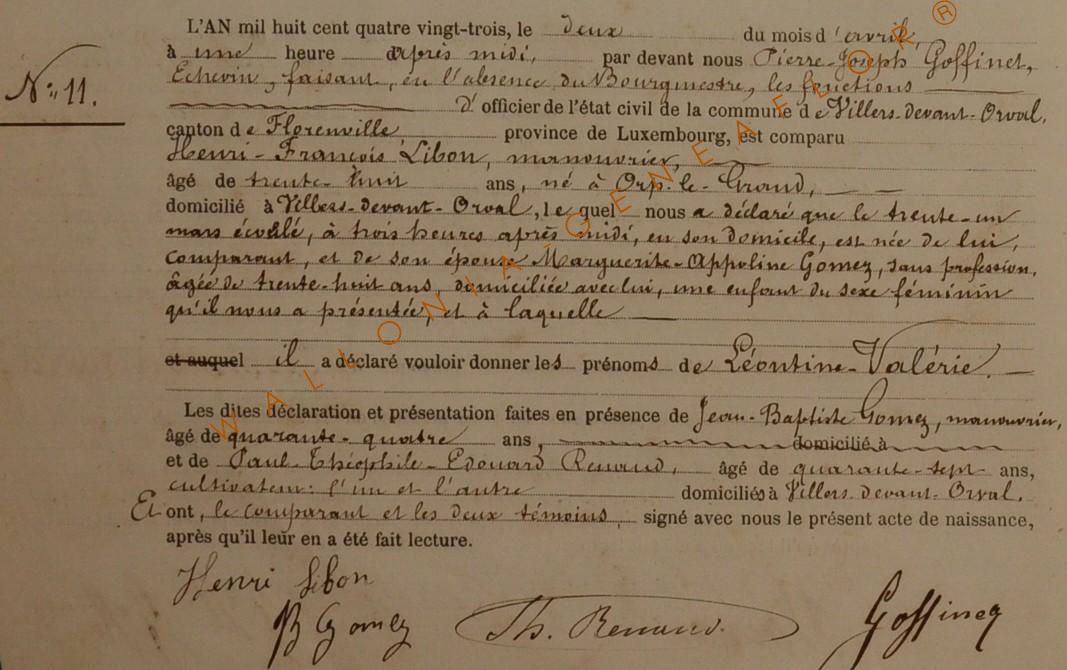 L'AN mil huit cent quatre vingt-trois, le deux du mois d'avril,
à une heure après midi, par devant nous Pierre-Joseph Goffinet,
N° 11.
Echevin, faisant, en l'absence du Bourgmestre, les fonctions
D'officier de l'état civil de la commune de Villers-devant-Orval,
canton de Florenville province de Luxembourg, est comparu
Henri-François Libon, manouvrier,
âgé de trente-huit ans, né à Orp-le-Grand,
domicilié à Villers-devant-Orval, lequel nous a déclaré que le trente-un
mars écoulé, à trois heures après midi, en son domicile, est née de lui,
comparant, et de son épouse Marguerite-Appoline Gomez, sans profession,
âgée de trente-huit ans, domiciliée avec lui, une enfant du sexe féminin
qu'il nous a présentée, et à laquelle
et auquel il a déclaré vouloir donner les prénoms de Léontine-Valérie.
Les dites déclaration et présentation faites en présence de Jean-Baptiste Gomez, manouvrier,
âgé de quarante-quatre ans, domicilié à
et de Paul-Théophile-Edouard Renaud, âgé de quarante-sept ans,
cultivateur: l'un et l'autre domiciliés à Villers-devant-Orval.
Et ont, le comparant et les deux témoins, signé avec nous le présent acte de naissance,
après qu'il leur en a été fait lecture.
Henri Libon
JB Gomez Th. Renaud. Goffineq
WALLONIA-GENEAFLOR ®